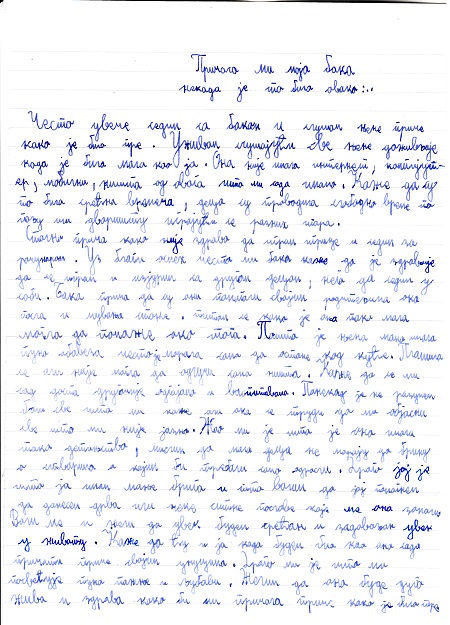 Причала ми моја бака
некада је то било овако:..
Често увече седим са баком и слушам њене приче
како је било пре. Уживам слушајући све њене доживљаје
када је била мала као ја. Она није имала интернет, компјут-
ер, мобилни, ништа од овога што ми сада имамо. Каже да су
то била срећна времена, деца су проводила слободно време по
пољу или дворишту играјући се разних игара.
Стално прича како није здраво да играм игрице и седим за
рачунаром. Уз благи осмех често ми бака каже да је здравије
да се играм и јурим са другом децом, него да седим у
соби. Бака прича да су они помагали својим родитељима око
стоке и чувања стоке. Питам се како је она тако мала
могла да помаже око тога. Пошто је њена мајка имала
пуно обавеза често је морала сама да остане код куће. Плашила
се али није могла да одлучи сама ништа. Каже да се ми
сад доста другачије одгајамо и васпитавамо. Понекад је не разумем
баш све што ми каже али она се труди да ми објасни
све што ми није јасно. Жао ми је што је она имала
тако детињство, мислим да мала деца не морају да брину
о стварима о којим би требали само одрасли. Драго јој је
што ја имам мање брига и што волим да јој помогнем
да донесем дрва или неке ситне послове које ме она замоли
Воли ме и жели да увек будем срећан и задовољан увек
у животу. Каже да ћу и ја када будем био као она сада
причати приче својим унуцима. Драго ми је што ми
посвећује пуно пажње и љубави. Желим да она буде дуго
жива и здрава како би ми причала приче како је било пре